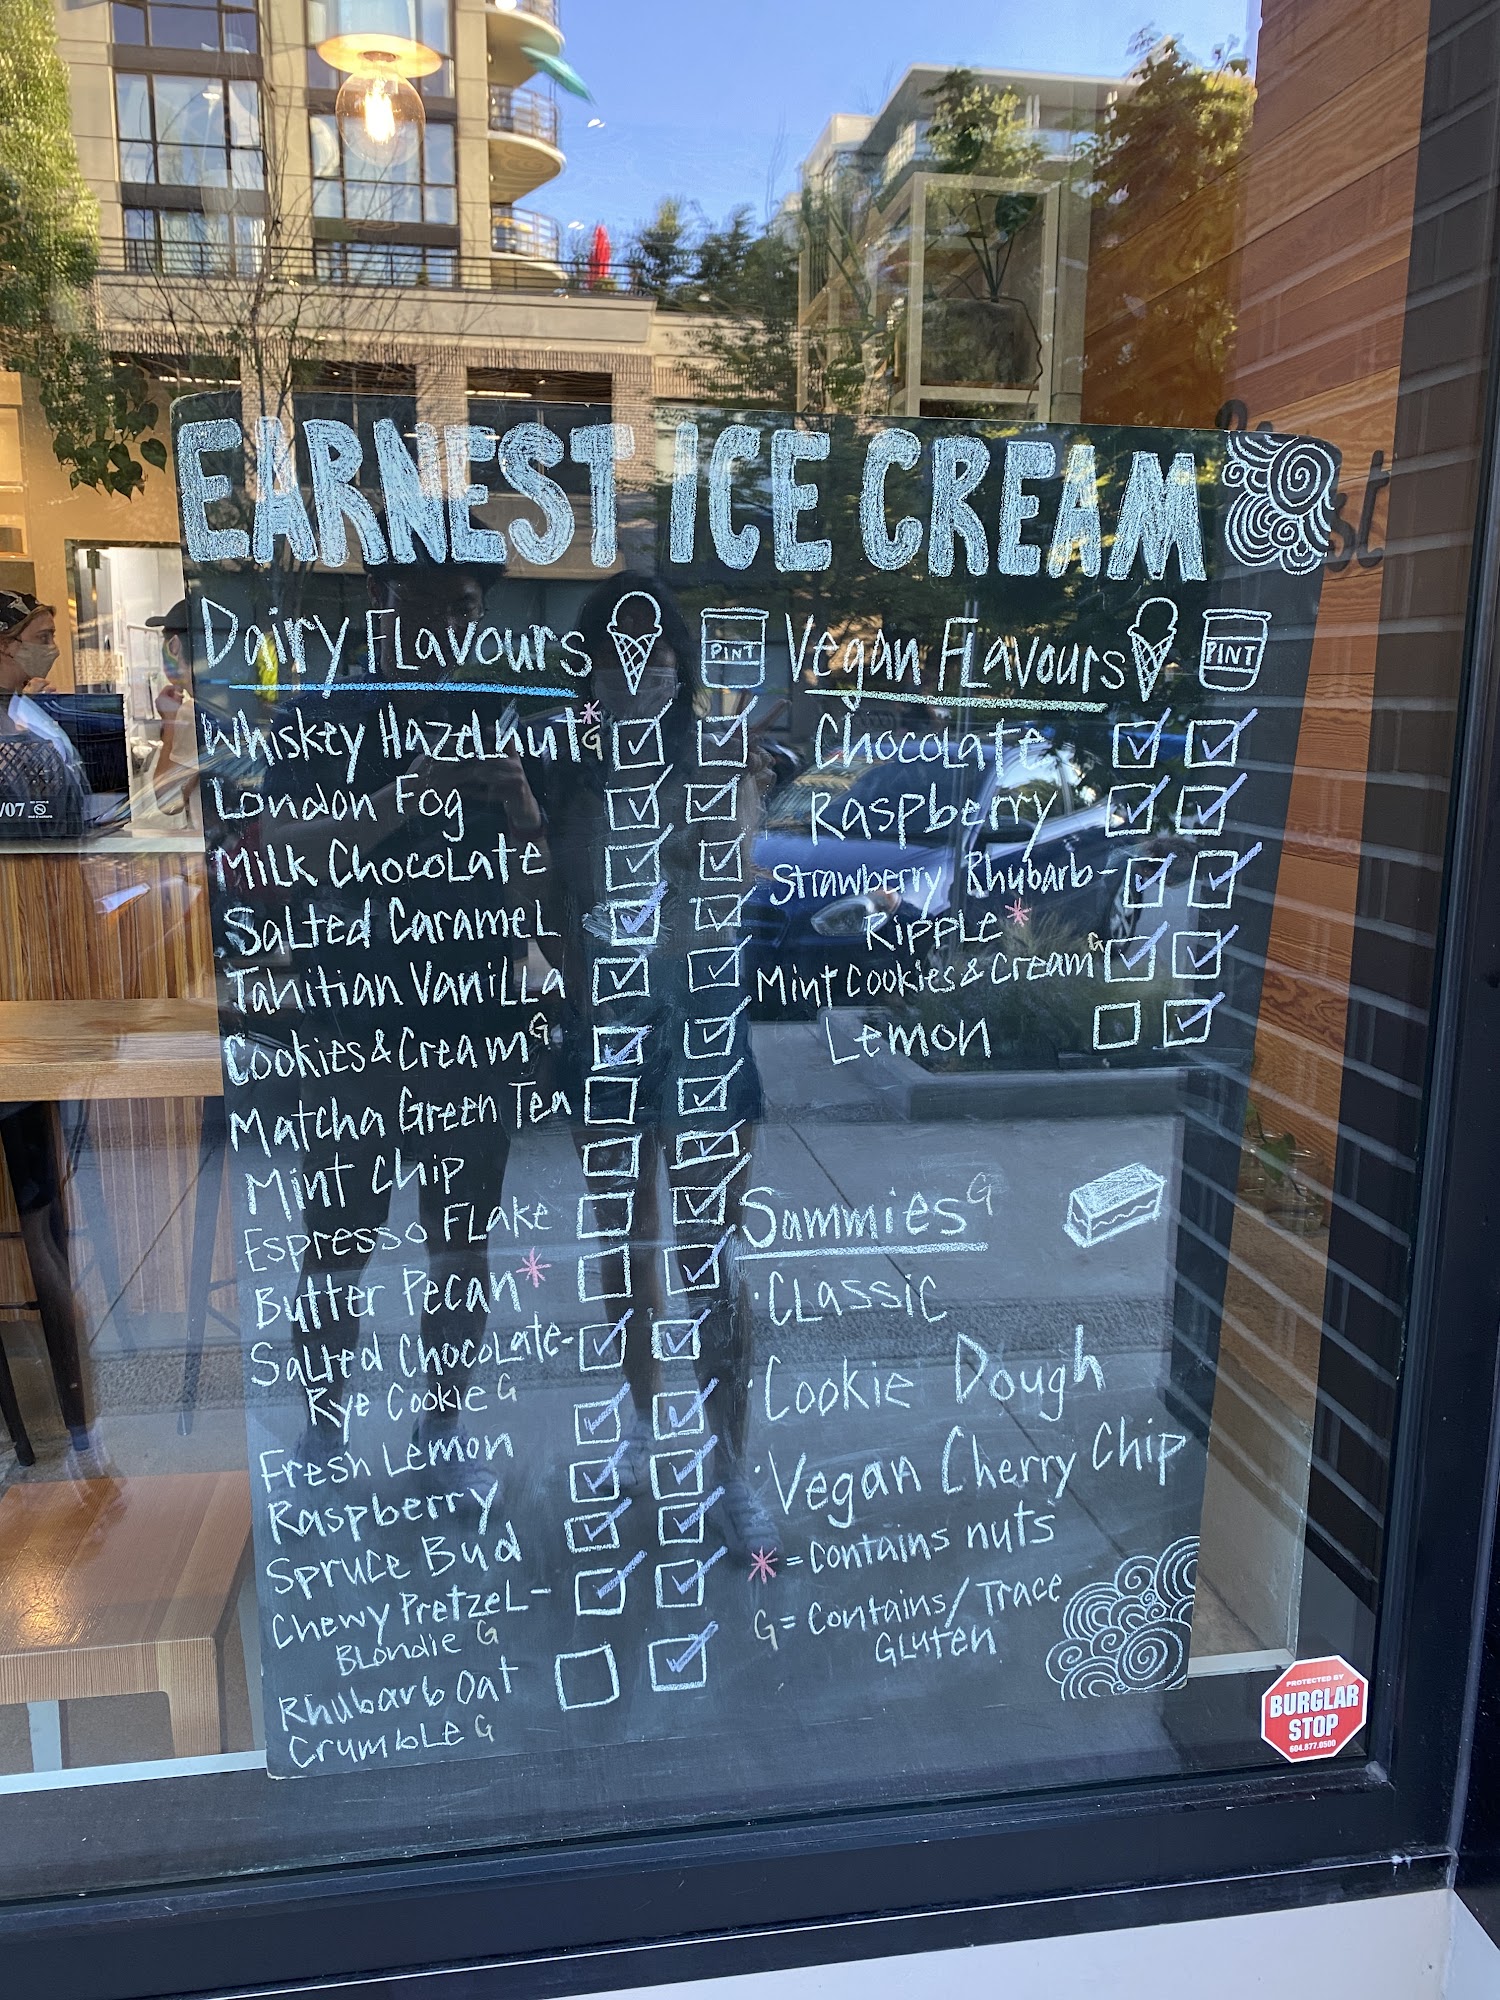 EARNEST ICE CREAM
Dairy FLavours
PINT
Whiskey HazeLnut* G
London Fog
Milk ChocoLate
SaLted CarameL
Tahitian VaniLLa
Cookies & Cream G
Matcha Green Tea
Mint Chip
Espresso FLake
Butter Pecan*
SaLted ChocoLate-
Rye Cookie G
Fresh Lemon
Raspberry
Spruce Bud
Chewy PretzeL-
BLondie G
Rhubarb Oat
CrumbLe G
Vegan FLavours
PINT
ChocoLate
Raspberry
Strawberry Rhubarb-
RippLe*
Mint Cookies & Cream G
Lemon
Sammies G
· CLassic
· Cookie Dough
· Vegan Cherry Chip
* = Contains nuts
G = Contains/Trace
GLuten
PROTECTED BY
BURGLAR
STOP
604.877.0500
/07
st